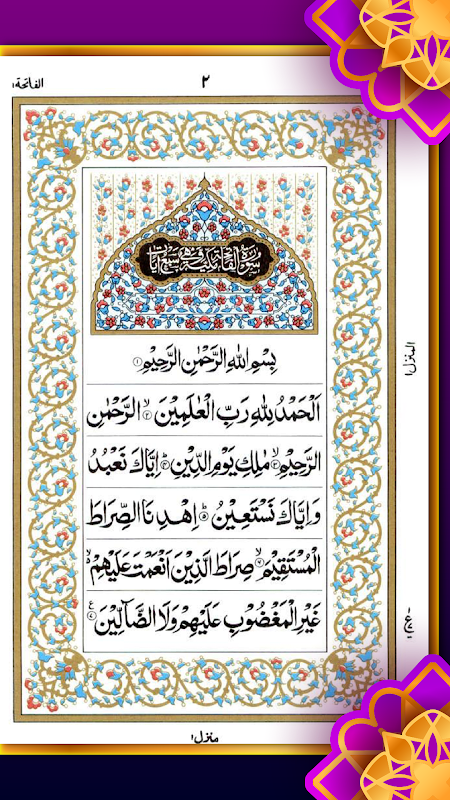 الفاتحة ١
٢
سورة الفاتحة مكية وهي سبع آيات
بِسْمِ اللهِ الرَّحْمٰنِ الرَّحِيْمِ ۝١
اَلْحَمْدُ لِلّٰهِ رَبِّ الْعٰلَمِيْنَ ۝٢ۙ الرَّحْمٰنِ
الرَّحِيْمِ ۝٣ۙ مٰلِكِ يَوْمِ الدِّيْنِ ۝٤ؕ اِيَّاكَ نَعْبُدُ
وَاِيَّاكَ نَسْتَعِيْنُ ۝٥ؕ اِهْدِنَا الصِّرَاطَ
الْمُسْتَقِيْمَ ۝٦ۙ صِرَاطَ الَّذِيْنَ اَنْعَمْتَ عَلَيْهِمْ ۙ
غَيْرِ الْمَغْضُوْبِ عَلَيْهِمْ وَلَا الضَّآلِّيْنَ ۝٧ ع
المنزل ١
منزل ١